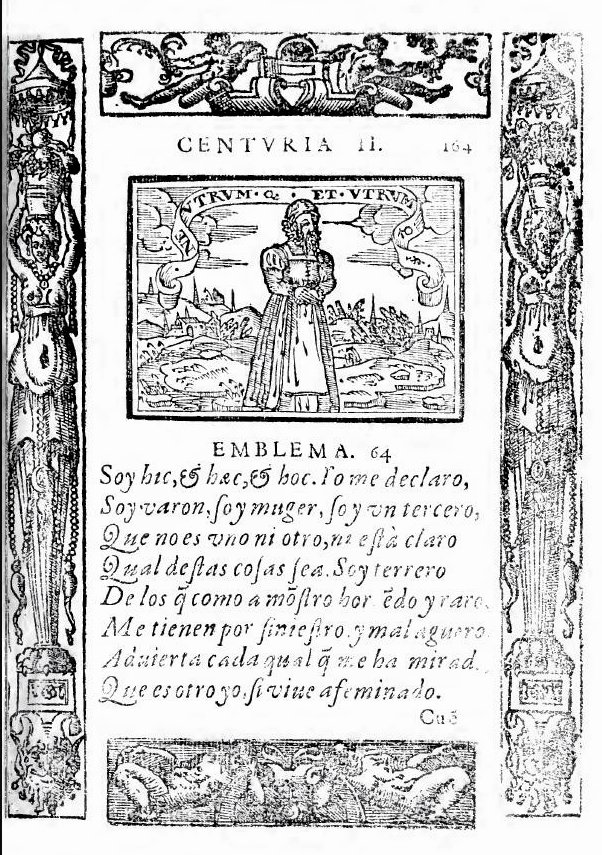 CENTVRIA II. 164
NE UTRUM · Q · ET · VTRUM
EMBLEMA. 64
Soy hic, & hæc, & hoc. Yo me declaro,
Soy varon, ſoy muger, ſoy vn tercero,
Que no es vno ni otro, ni eſtà claro
Qual deſtas coſas ſea. Soy terrero
De los q̃ como a mõſtro hor ẽdo y raro,
Me tienen por ſinieſtro, y mal aguero
Aduierta cada qual q̃ me ha mirad
Que es otro yo, ſi viue afeminado.
Cuẽ